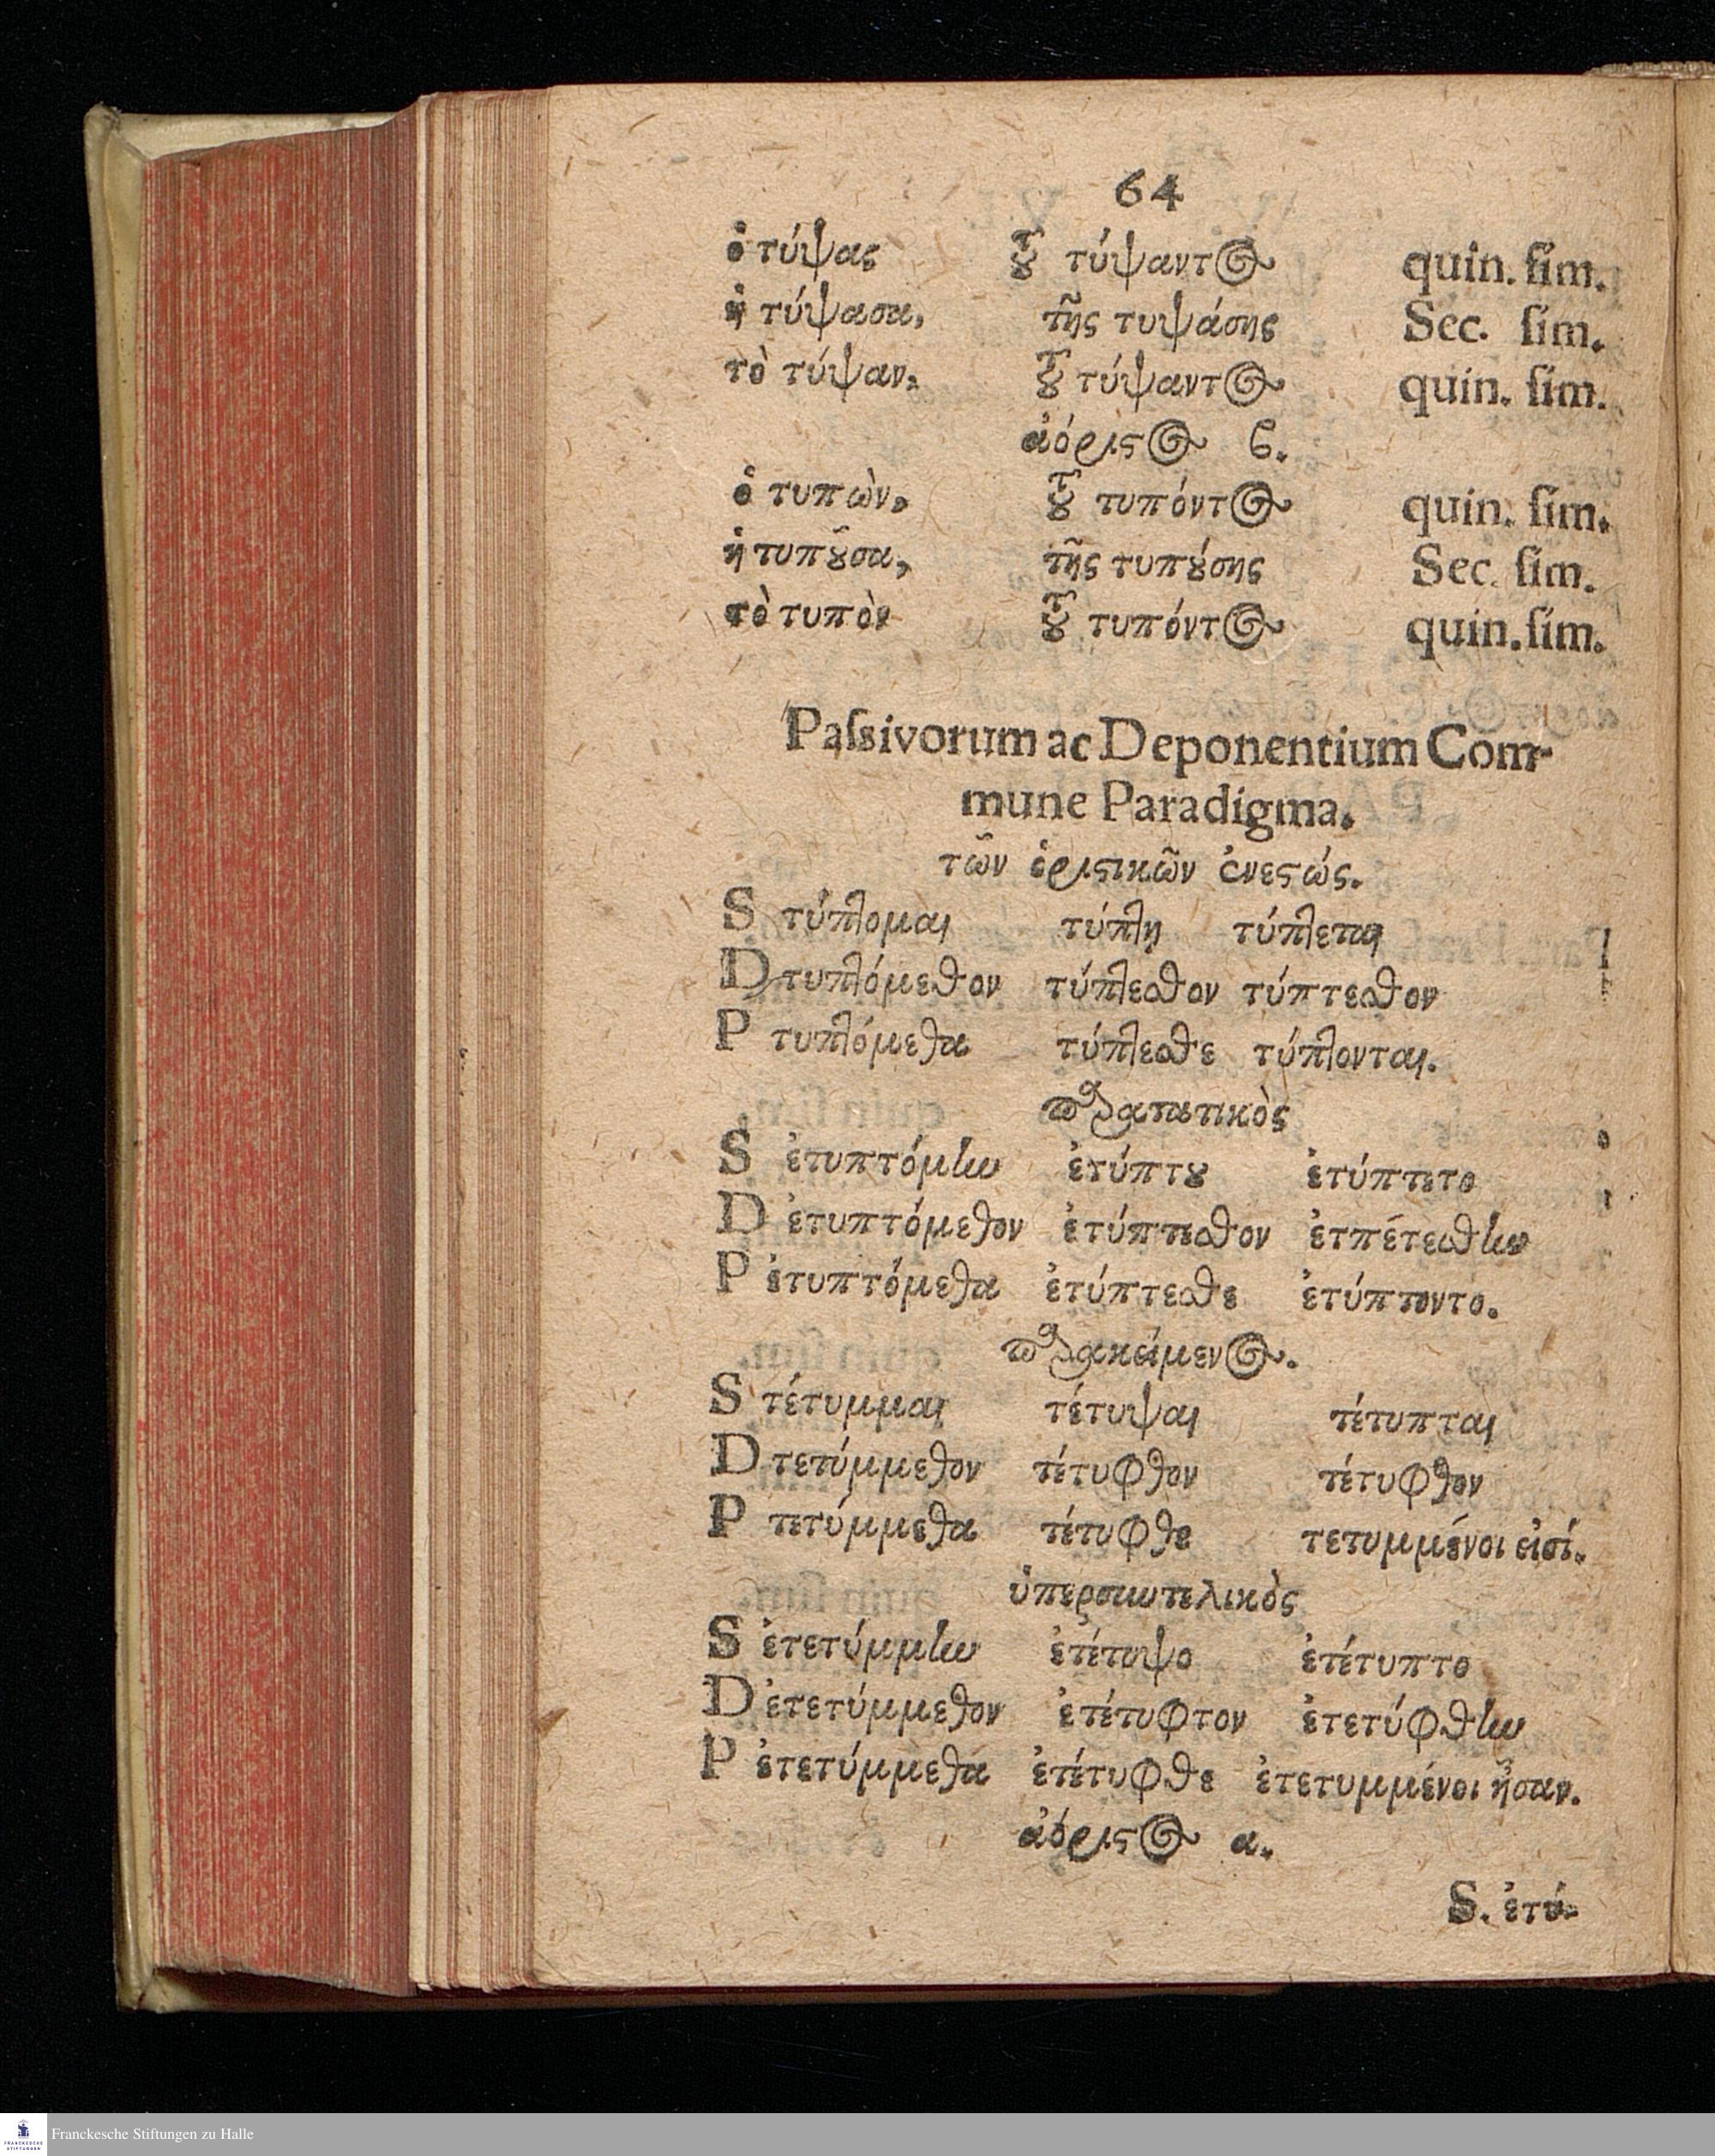 64
ὁ τύψας τοῦ τύψαντος quin. ſim.
ἡ τύψασα, τῆς τυψάσης Sec. ſim.
τὸ τύψαν, τοῦ τύψαντος quin. ſim.
ἀόριστος ϐ.
ὁ τυπὼν, τοῦ τυπόντος quin. ſim.
ἡ τυποῦσα, τῆς τυπούσης Sec. ſim.
τὸ τυπὸν τοῦ τυπόντος quin. ſim.
Paſsivorum ac Deponentium Com-
mune Paradigma.
τῶν ὁριστικῶν ἐνεστώς.
S τύπτομαι τύπτη τύπτεται
D τυπτόμεθον τύπτεσθον τύπτεσθον
P τυπτόμεθα τύπτεσθε τύπτονται.
παρατατικὸς
S ἐτυπτόμην ἐτύπτου ἐτύπτετο
D ἐτυπτόμεθον ἐτύπτεσθον ἐτπέτεσθην
P ἐτυπτόμεθα ἐτύπτεσθε ἐτύπτοντο.
παρακείμενος.
S τέτυμμαι τέτυψαι τέτυπται
D τετύμμεθον τέτυφθον τέτυφθον
P τετύμμεθα τέτυφθε τετυμμένοι εἰσί.
ὑπερσυντελικὸς
S ἐτετύμμην ἐτέτυψο ἐτέτυπτο
D ἐτετύμμεθον ἐτέτυφτον ἐτετύφθην
P ἐτετύμμεθα ἐτέτυφθε ἐτετυμμένοι ἦσαν.
ἀόριστος α.
S. ἐτύ-
FRANCKESCHE STIFTUNGEN
Franckesche Stiftungen zu Halle